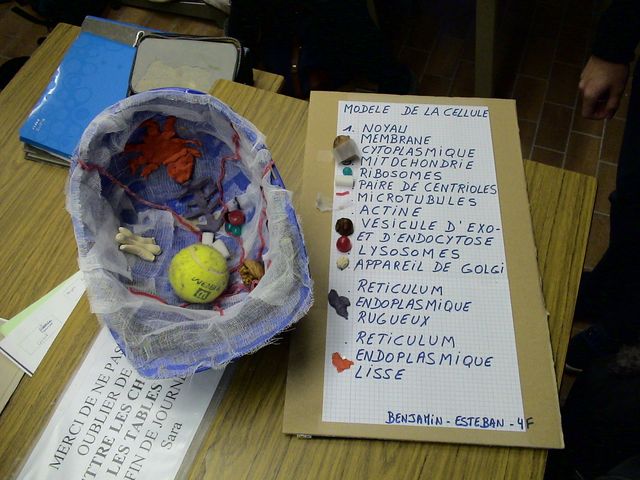 MODELE DE LA CELLULE
1. NOYAU
MEMBRANE
CYTOPLASMIQUE
MITOCHONDRIE
RIBOSOMES
PAIRE DE CENTRIOLES
MICROTUBULES
ACTINE
VESICULE D'EXO-
ET D'ENDOCYTOSE
LYSOSOMES
APPAREIL DE GOLGI
RETICULUM
ENDOPLASMIQUE
RUGUEUX
RETICULUM
ENDOPLASMIQUE
LISSE
BENJAMIN - ESTEBAN - 4F
MERCI DE NE PAS
OUBLIER DE
TTRE LES CH
LES TABLES
FIN DE JOURN
Sara